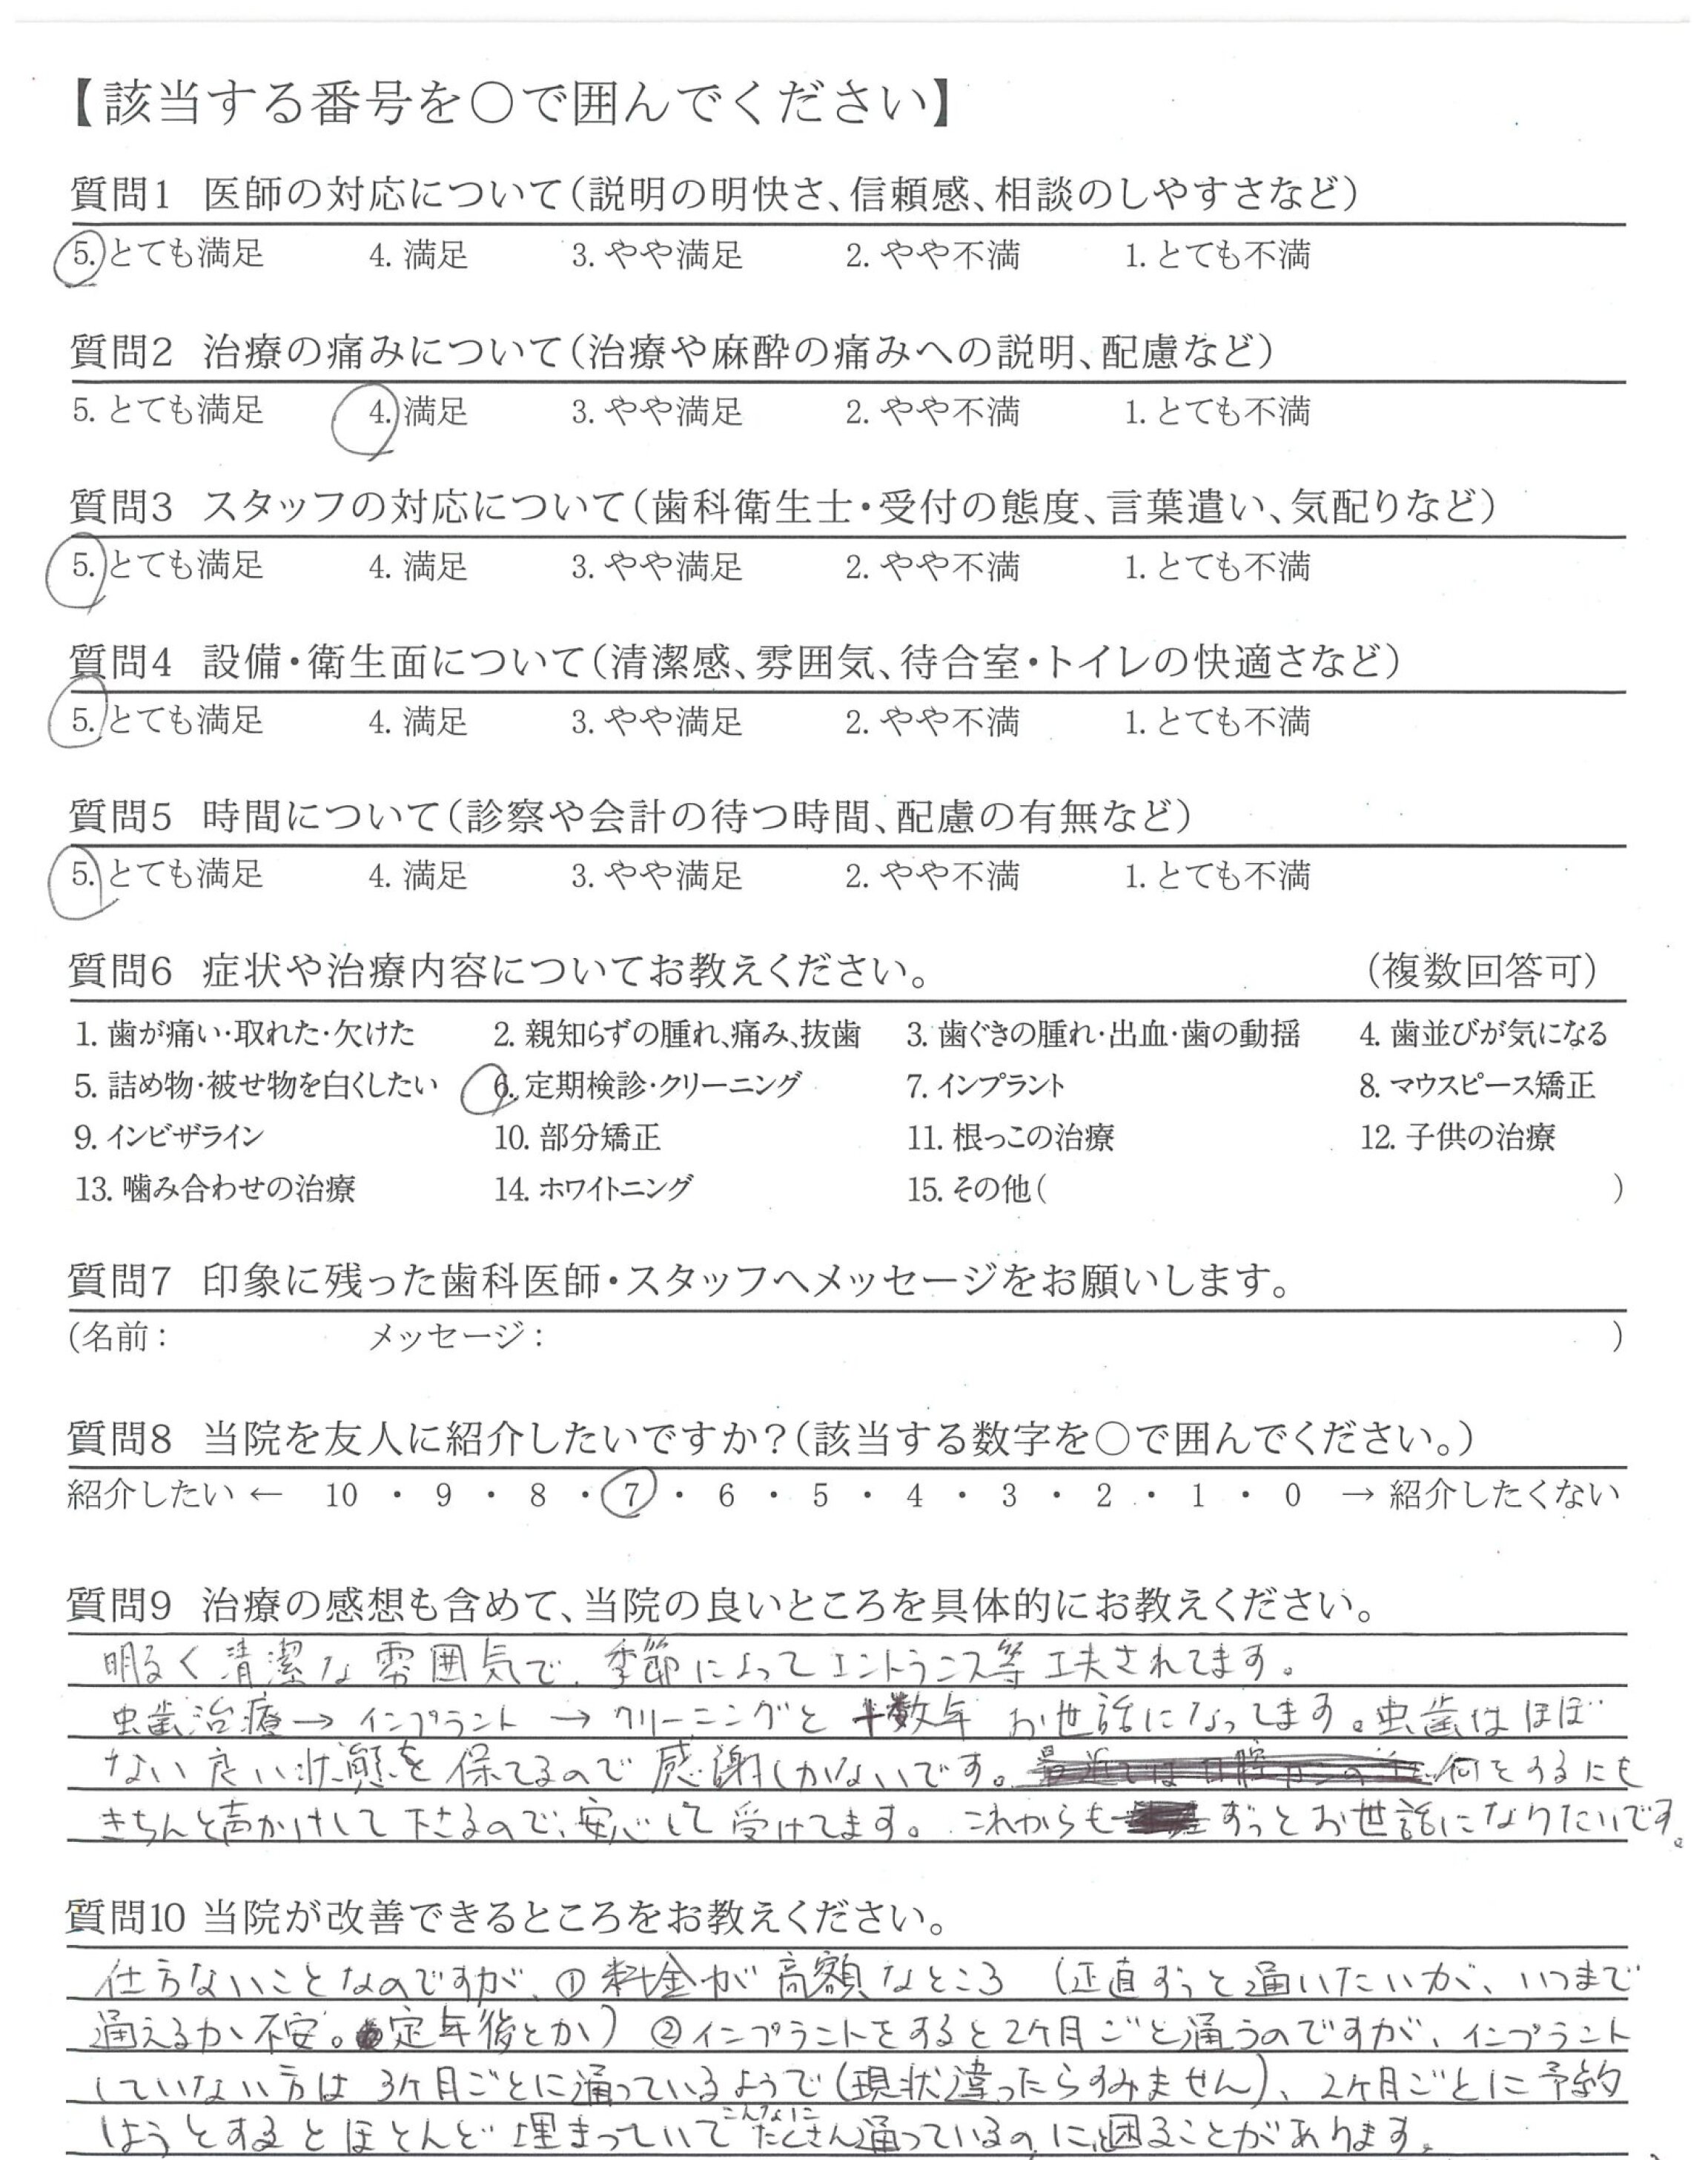 【該当する番号を○で囲んでください】
質問1 医師の対応について(説明の明快さ、信頼感、相談のしやすさなど)
5. とても満足 4. 満足 3. やや満足 2. やや不満 1. とても不満
質問2 治療の痛みについて(治療や麻酔の痛みへの説明、配慮など)
5. とても満足 4. 満足 3. やや満足 2. やや不満 1. とても不満
質問3 スタッフの対応について(歯科衛生士・受付の態度、言葉遣い、気配りなど)
5. とても満足 4. 満足 3. やや満足 2. やや不満 1. とても不満
質問4 設備・衛生面について(清潔感、雰囲気、待合室・トイレの快適さなど)
5. とても満足 4. 満足 3. やや満足 2. やや不満 1. とても不満
質問5 時間について(診察や会計の待つ時間、配慮の有無など)
5. とても満足 4. 満足 3. やや満足 2. やや不満 1. とても不満
質問6 症状や治療内容についてお教えください。 (複数回答可)
1. 歯が痛い・取れた・欠けた 2. 親知らずの腫れ、痛み、抜歯 3. 歯ぐきの腫れ・出血・歯の動揺 4. 歯並びが気になる
5. 詰め物・被せ物を白くしたい 6. 定期検診・クリーニング 7. インプラント 8. マウスピース矯正
9. インビザライン 10. 部分矯正 11. 根っこの治療 12. 子供の治療
13. 噛み合わせの治療 14. ホワイトニング 15. その他( )
質問7 印象に残った歯科医師・スタッフへメッセージをお願いします。
(名前: メッセージ: )
質問8 当院を友人に紹介したいですか?(該当する数字を○で囲んでください。)
紹介したい ← 10 ・ 9 ・ 8 ・ 7 ・ 6 ・ 5 ・ 4 ・ 3 ・ 2 ・ 1 ・ 0 → 紹介したくない
質問9 治療の感想も含めて、当院の良いところを具体的にお教えください。
明るく清潔な雰囲気で、季節によってエントランス等工夫されてます。
虫歯治療→インプラント→クリーニングと十数年お世話になってます。虫歯はほぼ
ない良い状態を保てるので感謝しかないです。何をするにも
きちんと声かけして下さるので、安心して受けてます。これからもずっとお世話になりたいです。
質問10 当院が改善できるところをお教えください。
仕方ないことなのですが、①料金が高額なところ(正直ずっと通いたいが、いつまで
通えるか不安。定年後とか)②インプラントをすると2ケ月ごと通うのですが、インプラント
していない方は3ケ月ごとに通っているようで(現状違ったらすみません)、2ケ月ごとに予約
しようとするとほとんど埋まっていてこんなにたくさん通っているのに、困ることがあります。